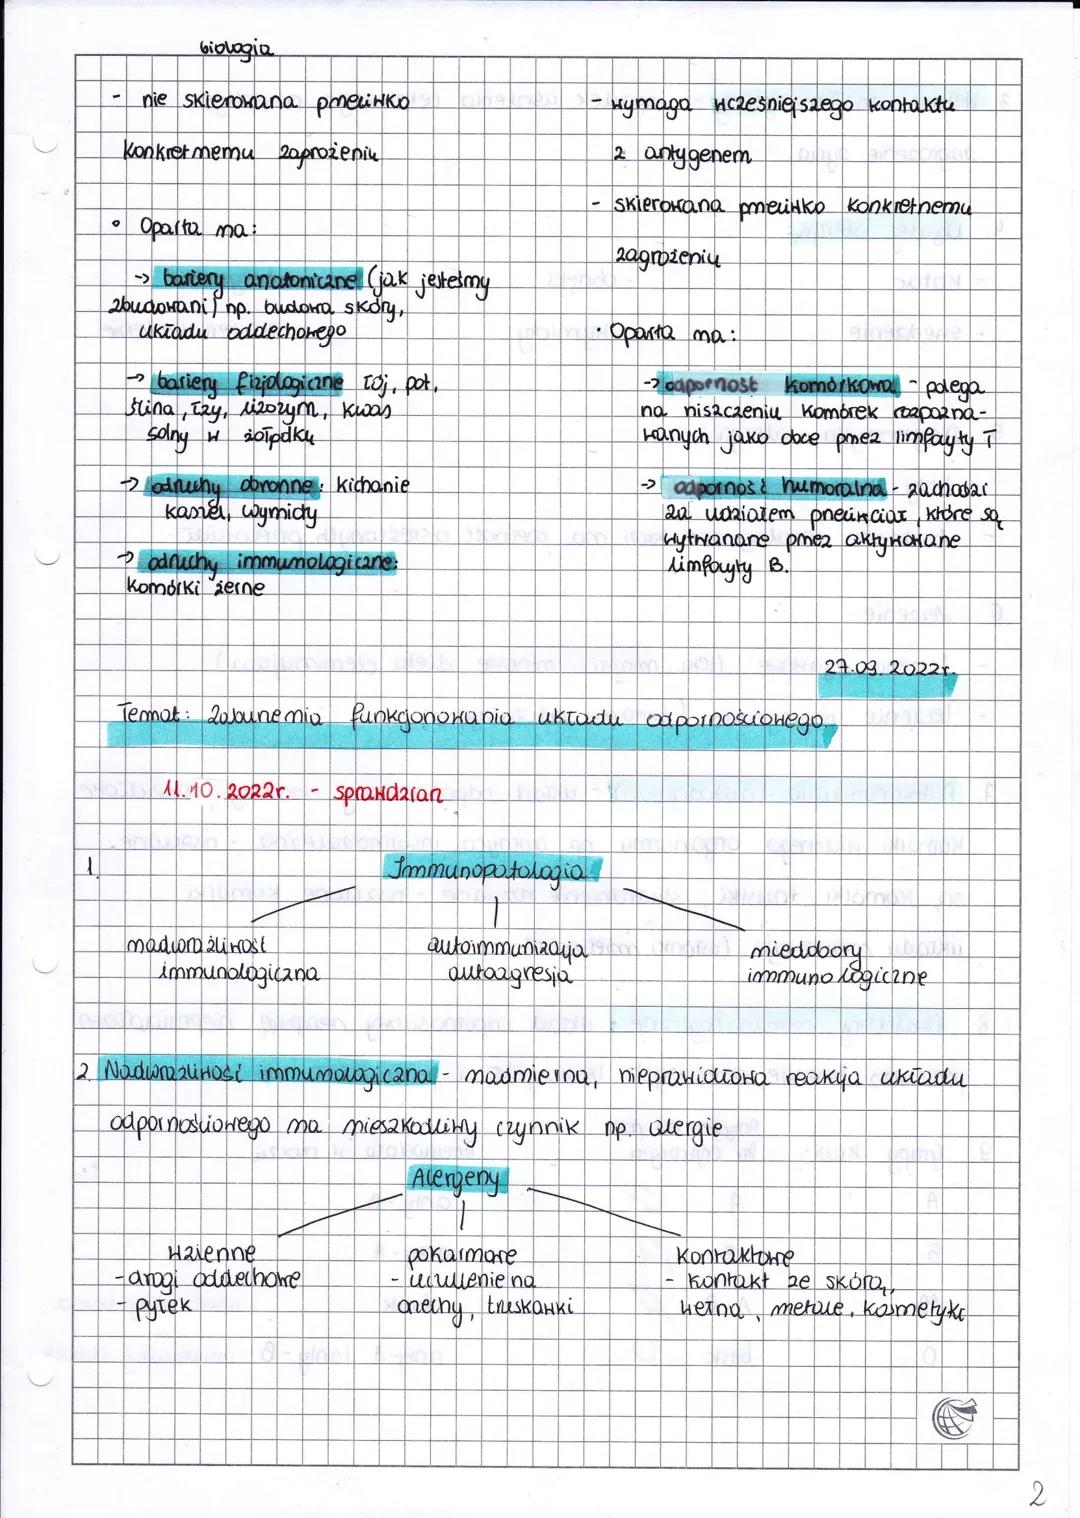 biologia
- nie skierowana przeciwko
konkretnemu zagrożeniu
• Oparta na:
→ bariery anatomiczne (jak jesteśmy
zbudowani) np. budowa skóry,
układu oddechowego
→ bariery fizjologiczne łój, pot,
ślina, łzy, lizozym, kwas
solny w żołądku
→ odruchy obronne: kichanie
kaszel, wymioty
→ odruchy immunologiczne:
komórki żerne
- wymaga wcześniejszego kontaktu
z antygenem
- skierowana przeciwko konkretnemu
zagrożeniu
• Oparta na:
→ odporność komórkowa - polega
na niszczeniu komórek rozpozna-
wanych jako obce przez limfocyty T
→ odporność humoralna - zachodzi
za udziałem przeciwciał, które są
wytwarzane przez aktywowane
limfocyty B.
27.09.2022r.
Temat: Zaburzenia funkcjonowania układu odpornościowego.
11.10.2022r. - sprawdzian
1. Immunopatologia
nadwrażliwość
immunologiczna
autoimmunizacja
autoagresja
niedobory
immunologiczne
2. Nadwrażliwość immunologiczna - nadmierna, nieprawidłowa reakcja układu
odpornościowego na nieszkodliwy czynnik np. alergie
Alergeny
wziewne
- drogi oddechowe
- pyłek
pokarmowe
- uczulenie na
orzechy, truskawki
kontaktowe
- kontakt ze skórą,
wełna, metale, kosmetyki
2